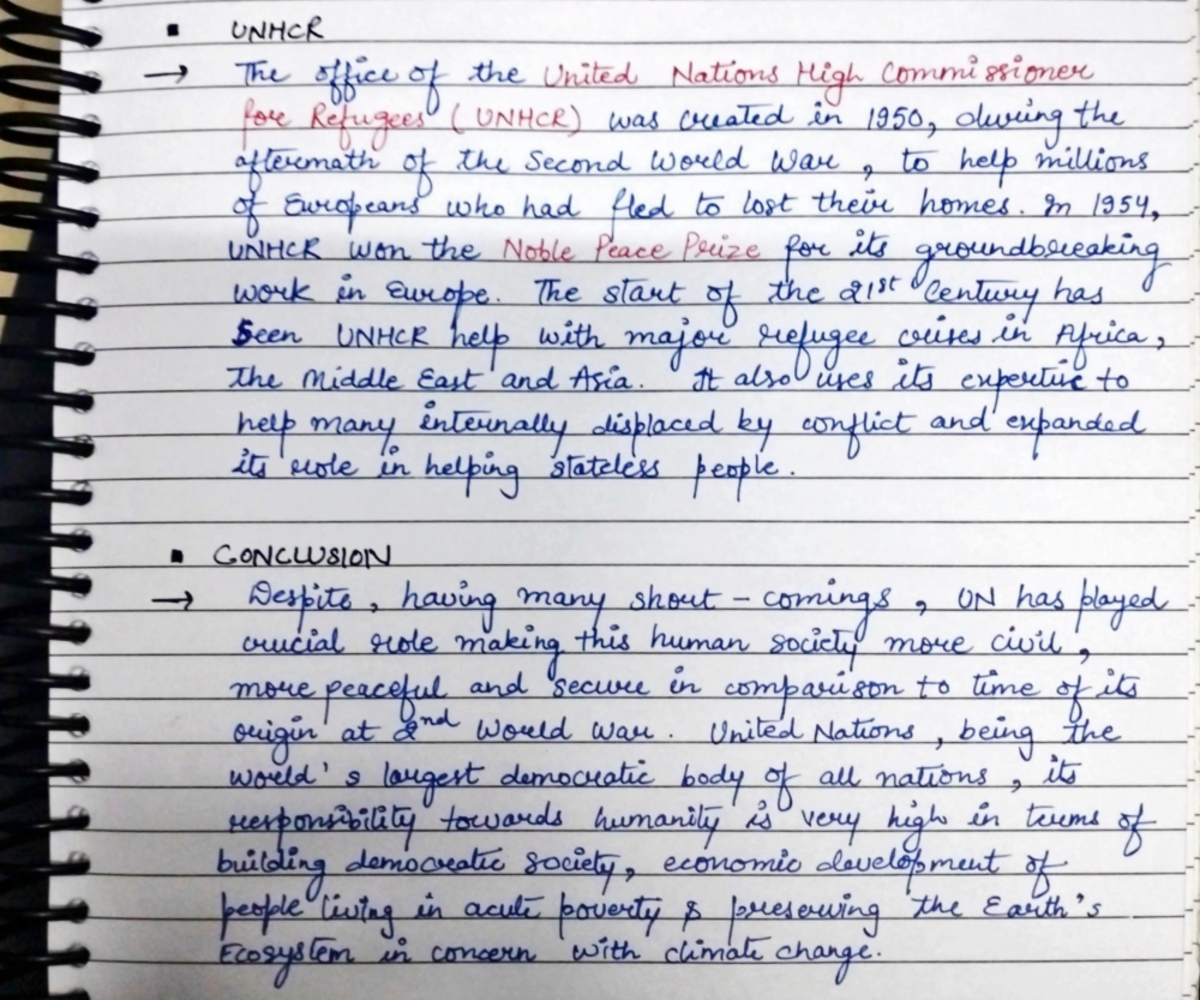 ▪ UNHCR
→ The office of the United Nations High Commissioner
for Refugees (UNHCR) was created in 1950, during the
aftermath of the Second World War, to help millions
of Europeans who had fled to lost their homes. In 1954,
UNHCR won the Noble Peace Prize for its groundbreaking
work in Europe. The start of the 21st Century has
Seen UNHCR help with major refugee crises in Africa,
the Middle East and Asia. It also uses its expertise to
help many internally displaced by conflict and expanded
its role in helping stateless people.
▪ CONCLUSION
→ Despite, having many short-comings, UN has played
crucial role making this human society more civil,
more peaceful and secure in comparison to time of its
origin at 2nd World War. United Nations, being the
world's largest democratic body of all nations, its
responsibility towards humanity is very high in terms of
building democratic society, economic development of
people living in acute poverty & preserving the Earth's
Ecosystem in concern with climate change.